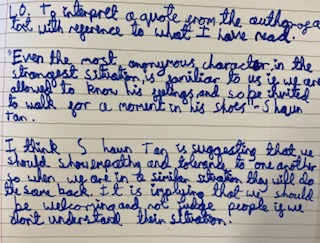 LO. To interpret a quote from the author of a
text with reference to what I have read.
"Even the most anonymous character in the
strangest situation, is familiar to us if we are
allowed to know his feelings and, so be invited
to walk for a moment in his shoes" - Shaun
Tan.
I think Shaun Tan is suggesting that we
should show empathy and tolerance to one another
so when we are in a similar situation they will do
the same back. It is implying that we should
be welcoming and not judge people if we
don't understand their situation.